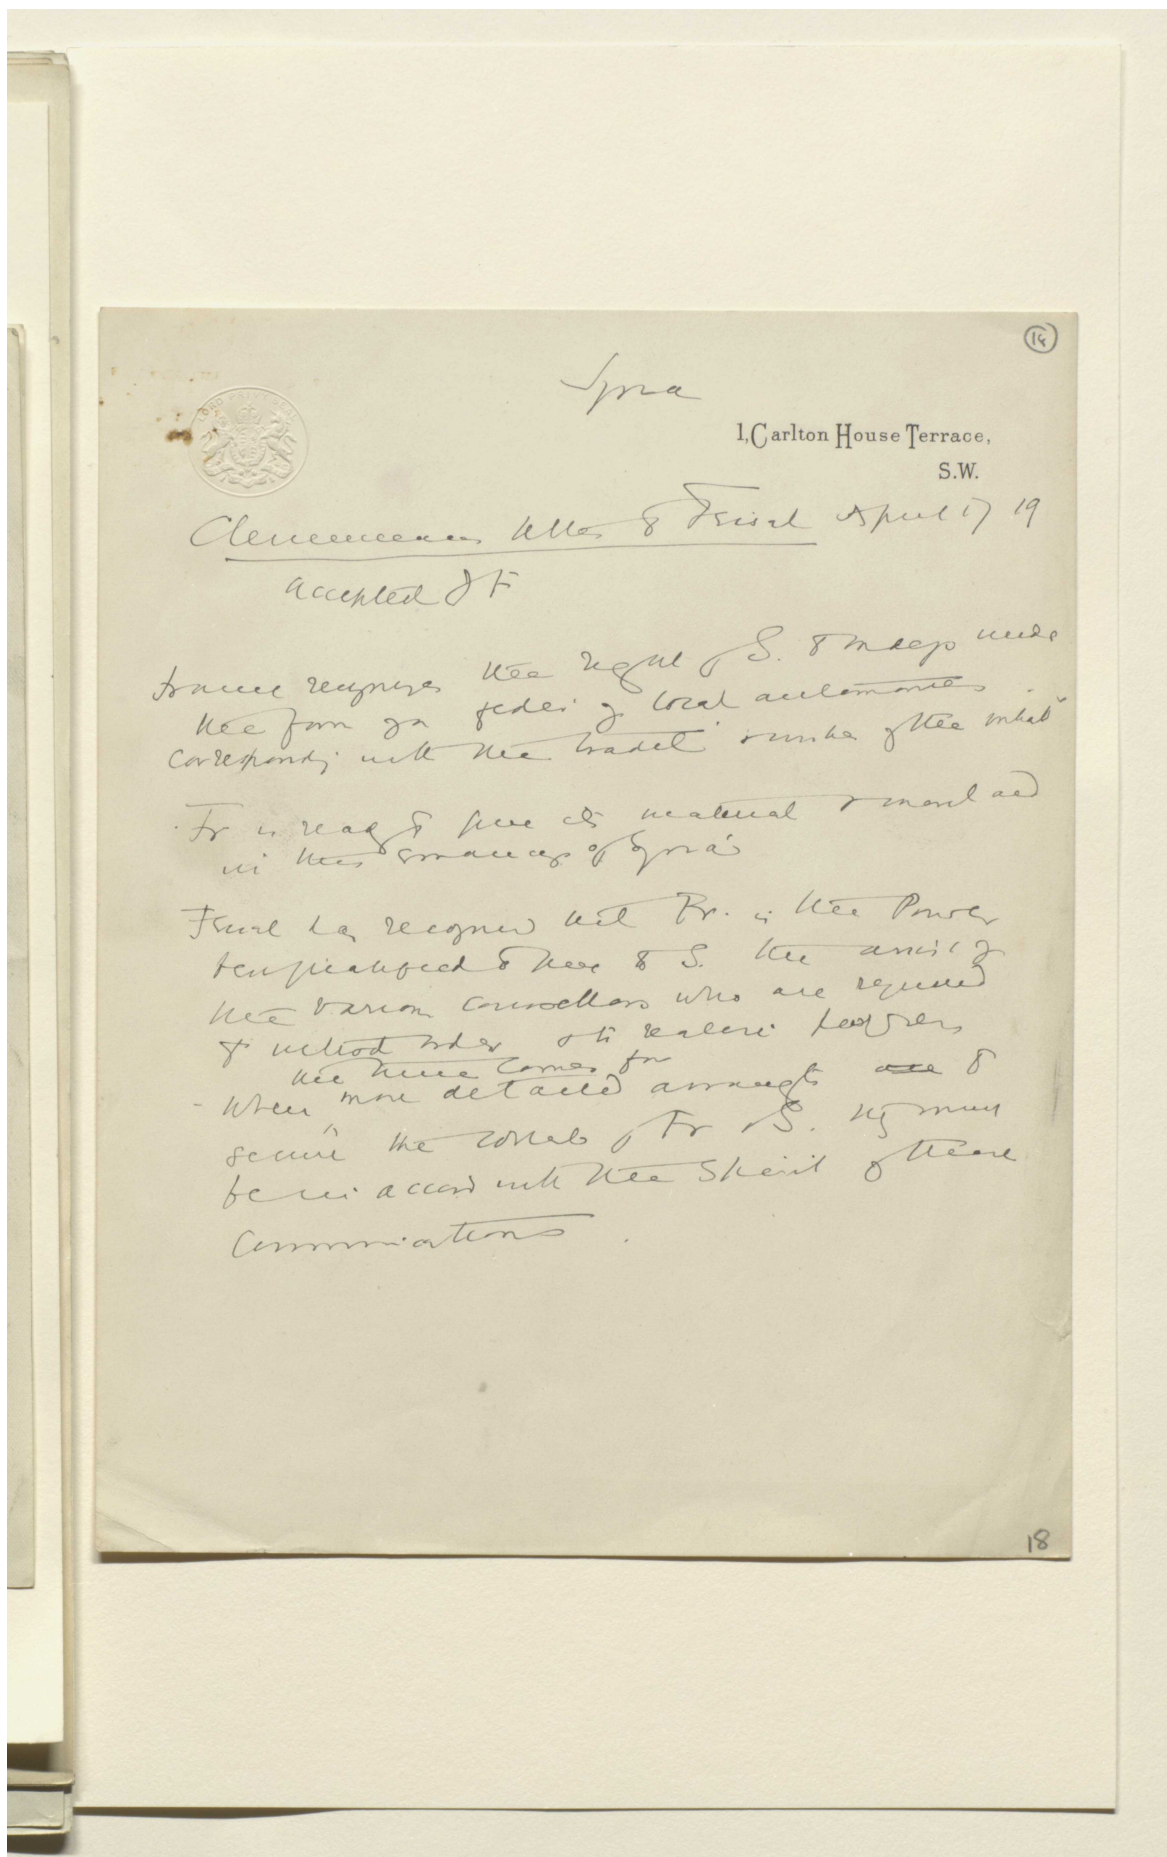 18
Syria
LORD PRIVY SEAL
1, Carlton House Terrace,
S.W.
Clemenceau letter to Feisal April 17 19
accepted by F
France recognizes the right of S. to indep under
the form of a feder. of local autonomies
corresponding with the tradit. & wishes of the inhabs
Fr is ready to give its material & moral aid
in this emancip of Syria
Feisal has recognised that Fr. is the Power
best qualified to give to S. the assist. of
the various counsellors who are required
to introd order & to realise progress
the time comes for
When more detailed arrangts are to
secure the collab of Fr & S. they must
be in accord with the spirit of these
communications.
18